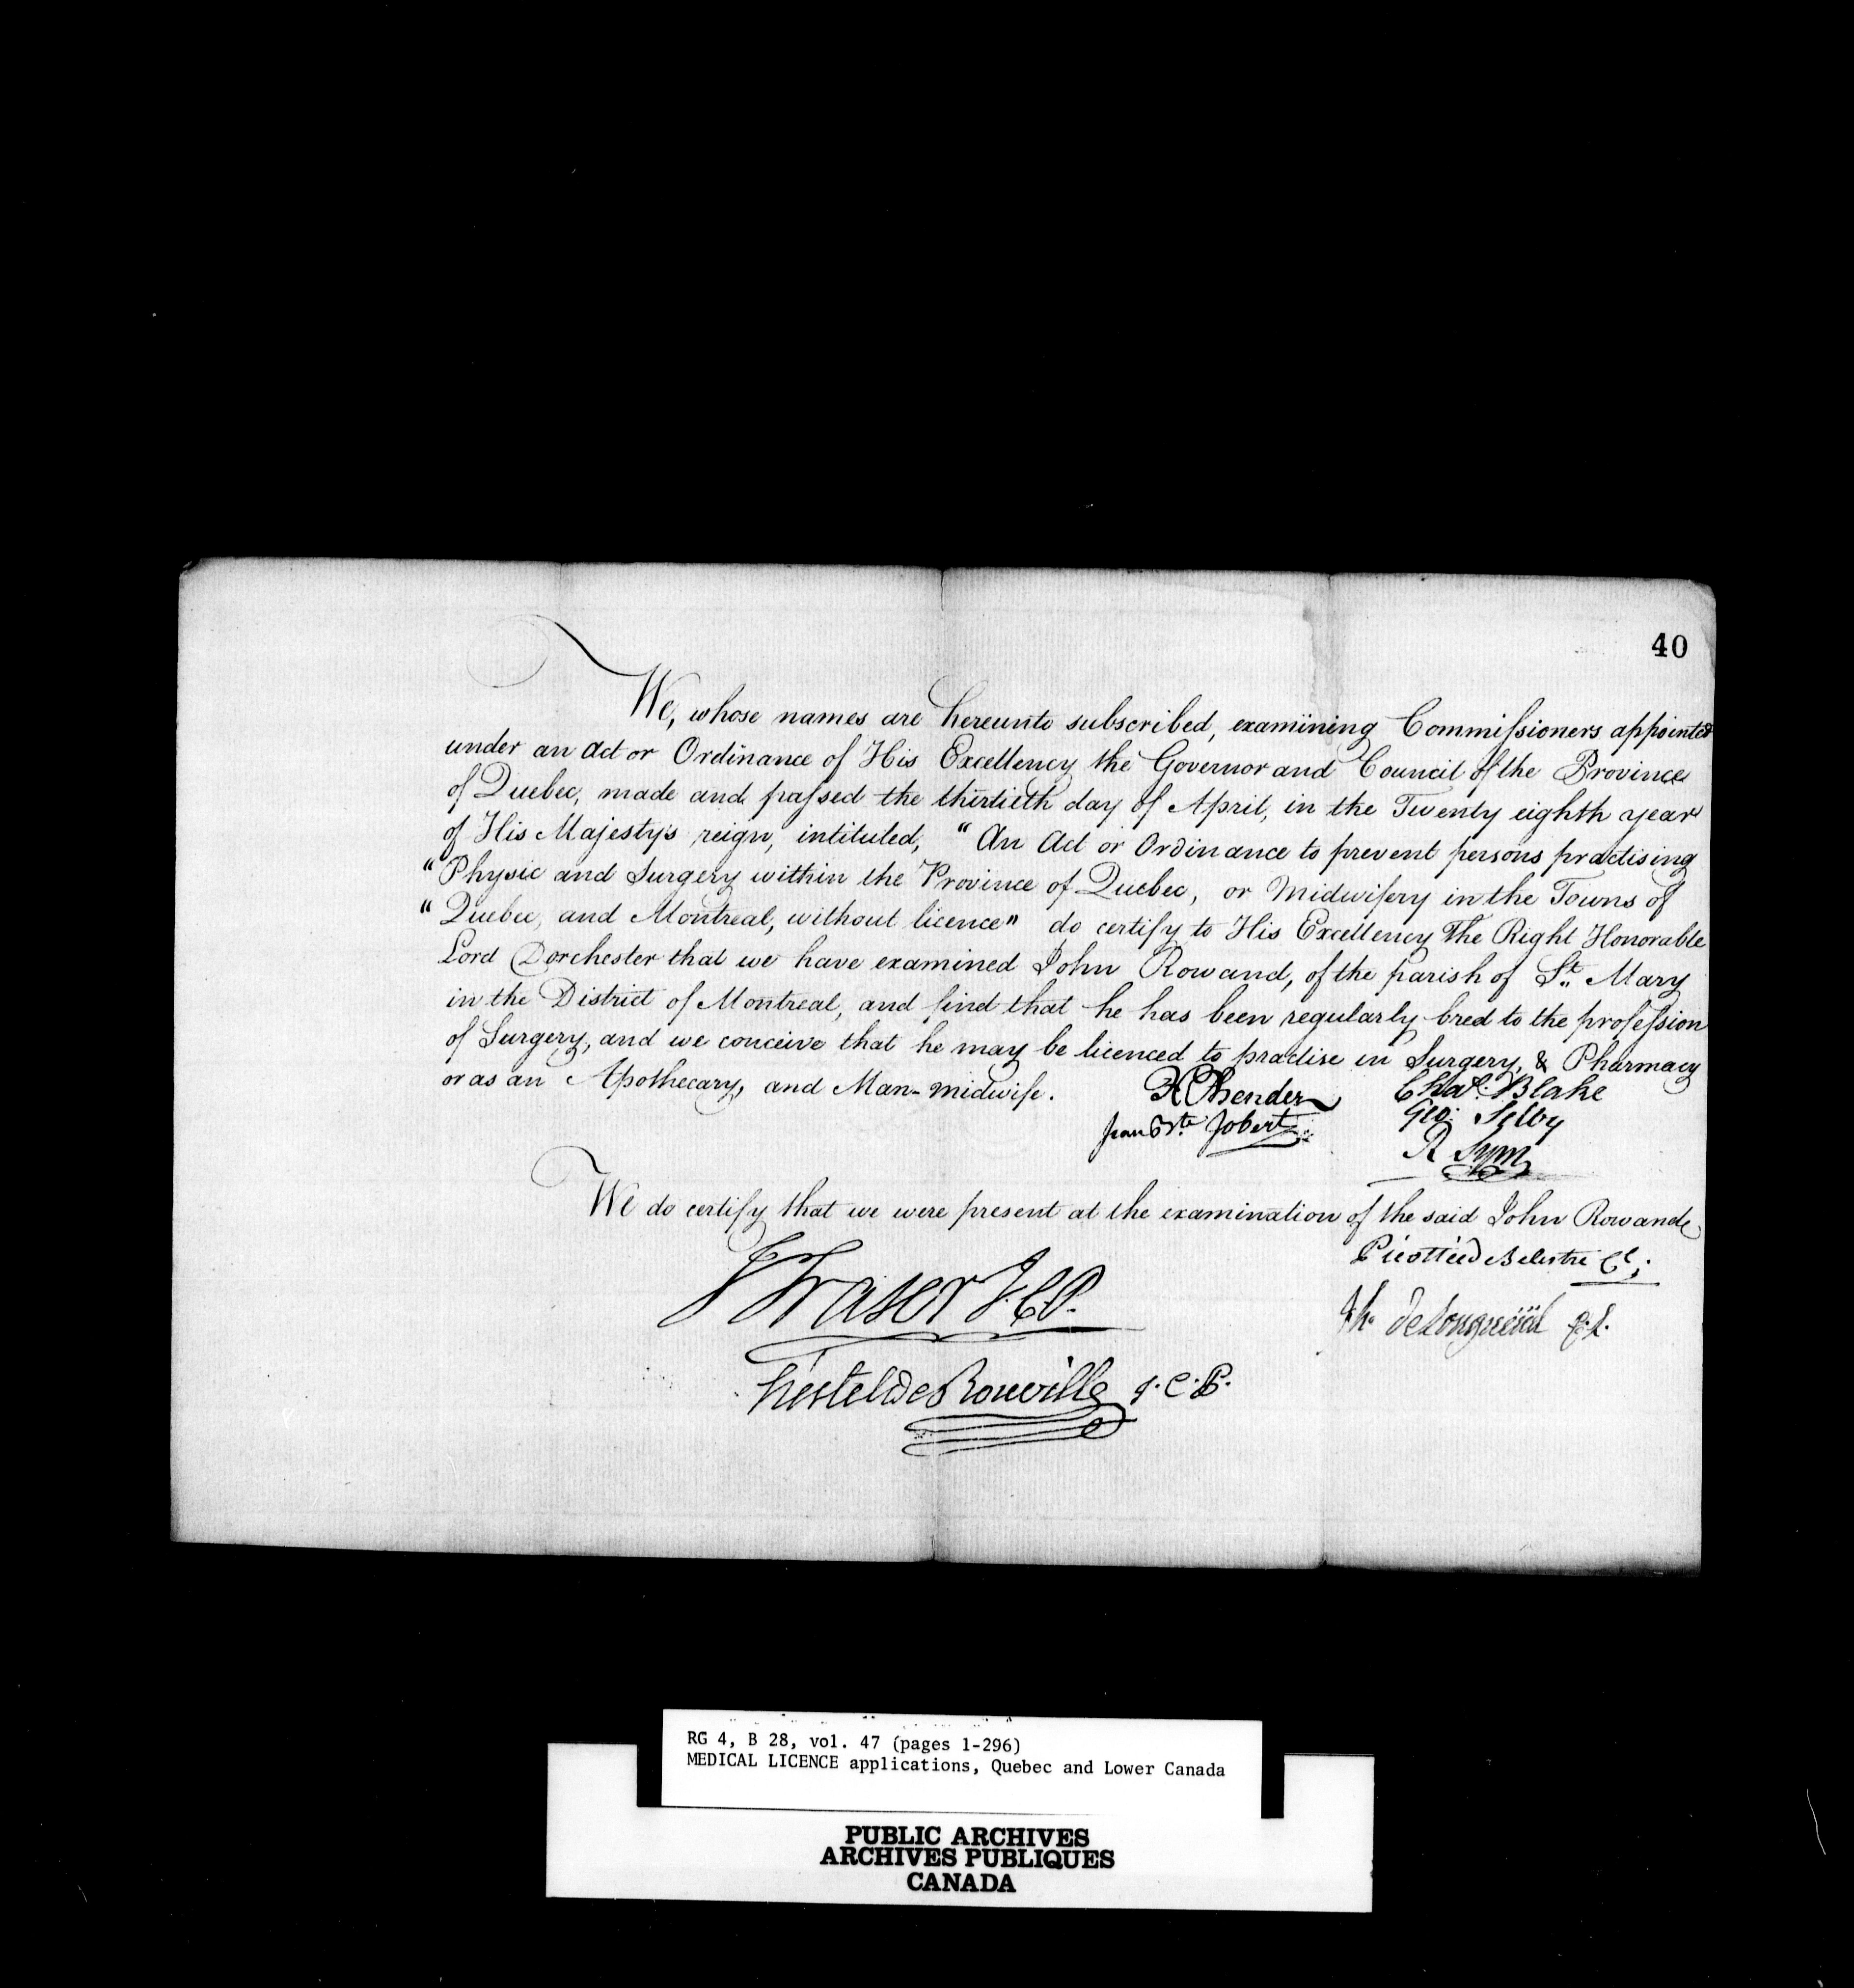 40
We, whose names are hereunto subscribed, examining Commissioners appointed
under an Act or Ordinance of His Excellency the Governor and Council of the Province
of Quebec, made and passed the thirtieth day of April, in the Twenty eighth year
of His Majesty's reign, intituled, "An Act or Ordinance to prevent persons practising
"Physic and Surgery within the Province of Quebec, or Midwifery in the Towns of
"Quebec, and Montreal, without licence" do certify to His Excellency The Right Honorable
Lord Dorchester that we have examined John Rowand, of the parish of St. Mary
in the District of Montreal, and find that he has been regularly bred to the profession
of Surgery, and we conceive that he may be licenced to practise in Surgery, & Pharmacy
or as an Apothecary, and Man-midwife.
Chas. Blake
Jean Bte. Jobert
Geo: Selby
R Sym
We do certify that we were present at the examination of the said John Rowand
Picotté de Belestre
J Fraser J.C.P.
De Longueüil
hertel de Rouville J.C.P.
RG 4, B 28, vol. 47 (pages 1-296)
MEDICAL LICENCE applications, Quebec and Lower Canada
PUBLIC ARCHIVES
ARCHIVES PUBLIQUES
CANADA